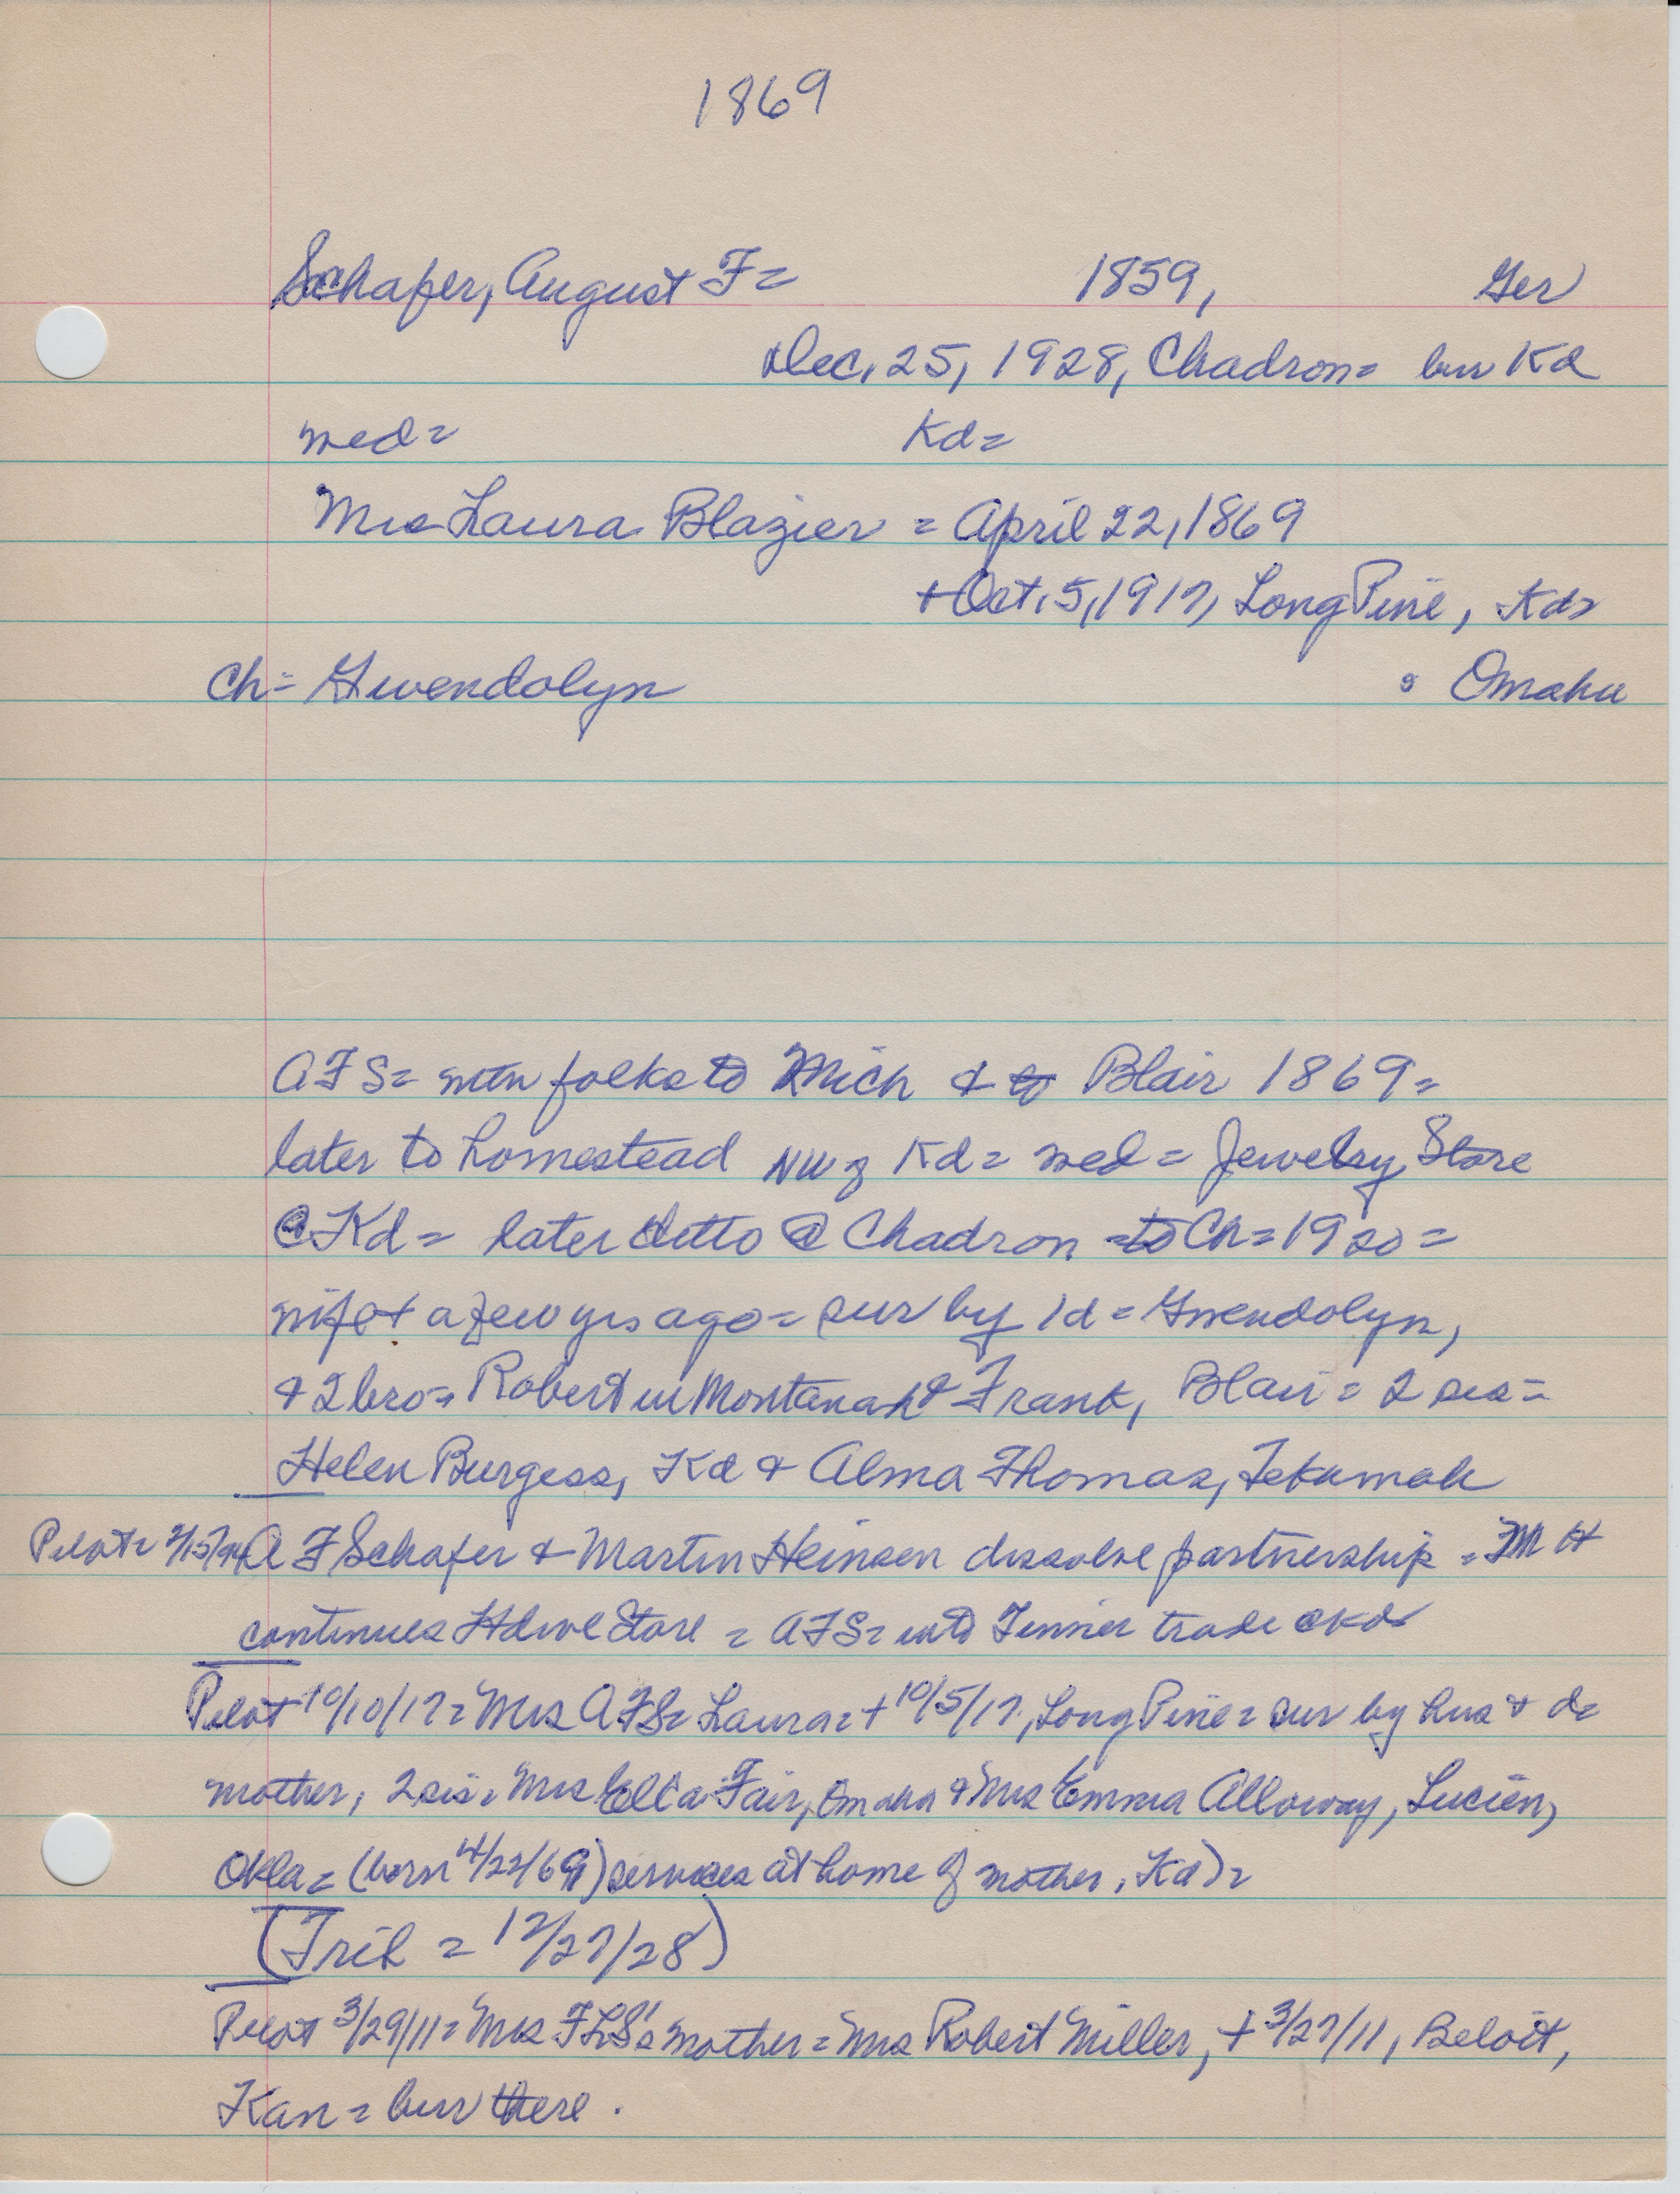 1869
Schafer, August F= 1859, Ger
Dec. 25, 1928, Chadron= bur Kd
med= Kd=
Mrs Laura Blazier = April 22, 1869
+ Oct. 5, 1917, Long Pine, Kd=
Ch= Gwendolyn = Omaha
AFS= wtn folks to Mich & to Blair 1869=
later to homestead NW of Kd= med= Jewelry Store
@ Kd= later ditto @ Chadron =to Ch=1920=
wife + a few yrs ago= sur by 1d= Gwendolyn,
& 2 bro= Robert in Montana & Frank, Blair= 2 sis=
Helen Burgess, Kd & Alma Thomas, Tekamah
Pilot= 2/15/94 A F Schafer & Martin Heinsen dissolve partnership = M H
continues Hdwe Store = AFS= into Tinner trade @ Kd
Pilot 10/10/17= Mrs AFS= Laura= + 10/5/17, Long Pine= sur by hus & d=
mother, 2 sis= Mrs Ella Fair, Omaha & Mrs Emma Alloway, Lucien,
Okla= (born 4/22/69) services at home of mother, Kd)=
(Trib = 12/27/28)
Pilot 3/29/11= Mrs FLS's mother= Mrs Robert Miller, + 3/27/11, Beloit,
Kan= bur there.